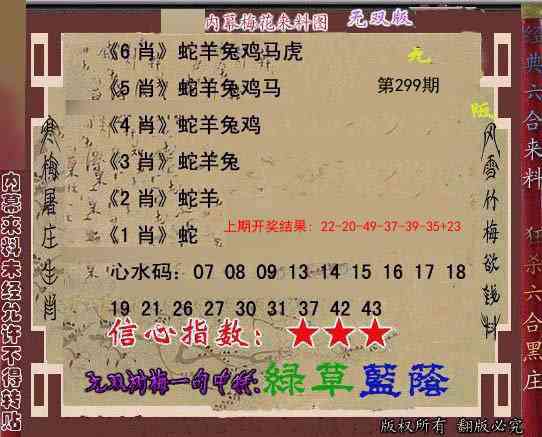 内幕梅花来料图 无双版
《6 肖》蛇羊兔鸡马虎
《5 肖》蛇羊兔鸡马
第299期
《4 肖》蛇羊兔鸡
《3 肖》蛇羊兔
《2 肖》蛇羊
上期开奖结果：22-20-49-37-39-35+23
《1 肖》蛇
心水码：07 08 09 13 14 15 16 17 18
19 21 26 27 30 31 37 42 43
信心指数：★★★
绿草蓝蔭
寒梅屠庄生肖
风雪竹梅欲钱料
内幕来料未经允许不得转贴
经典六合来料
狂杀六合黑庄
版权所有 翻版必究